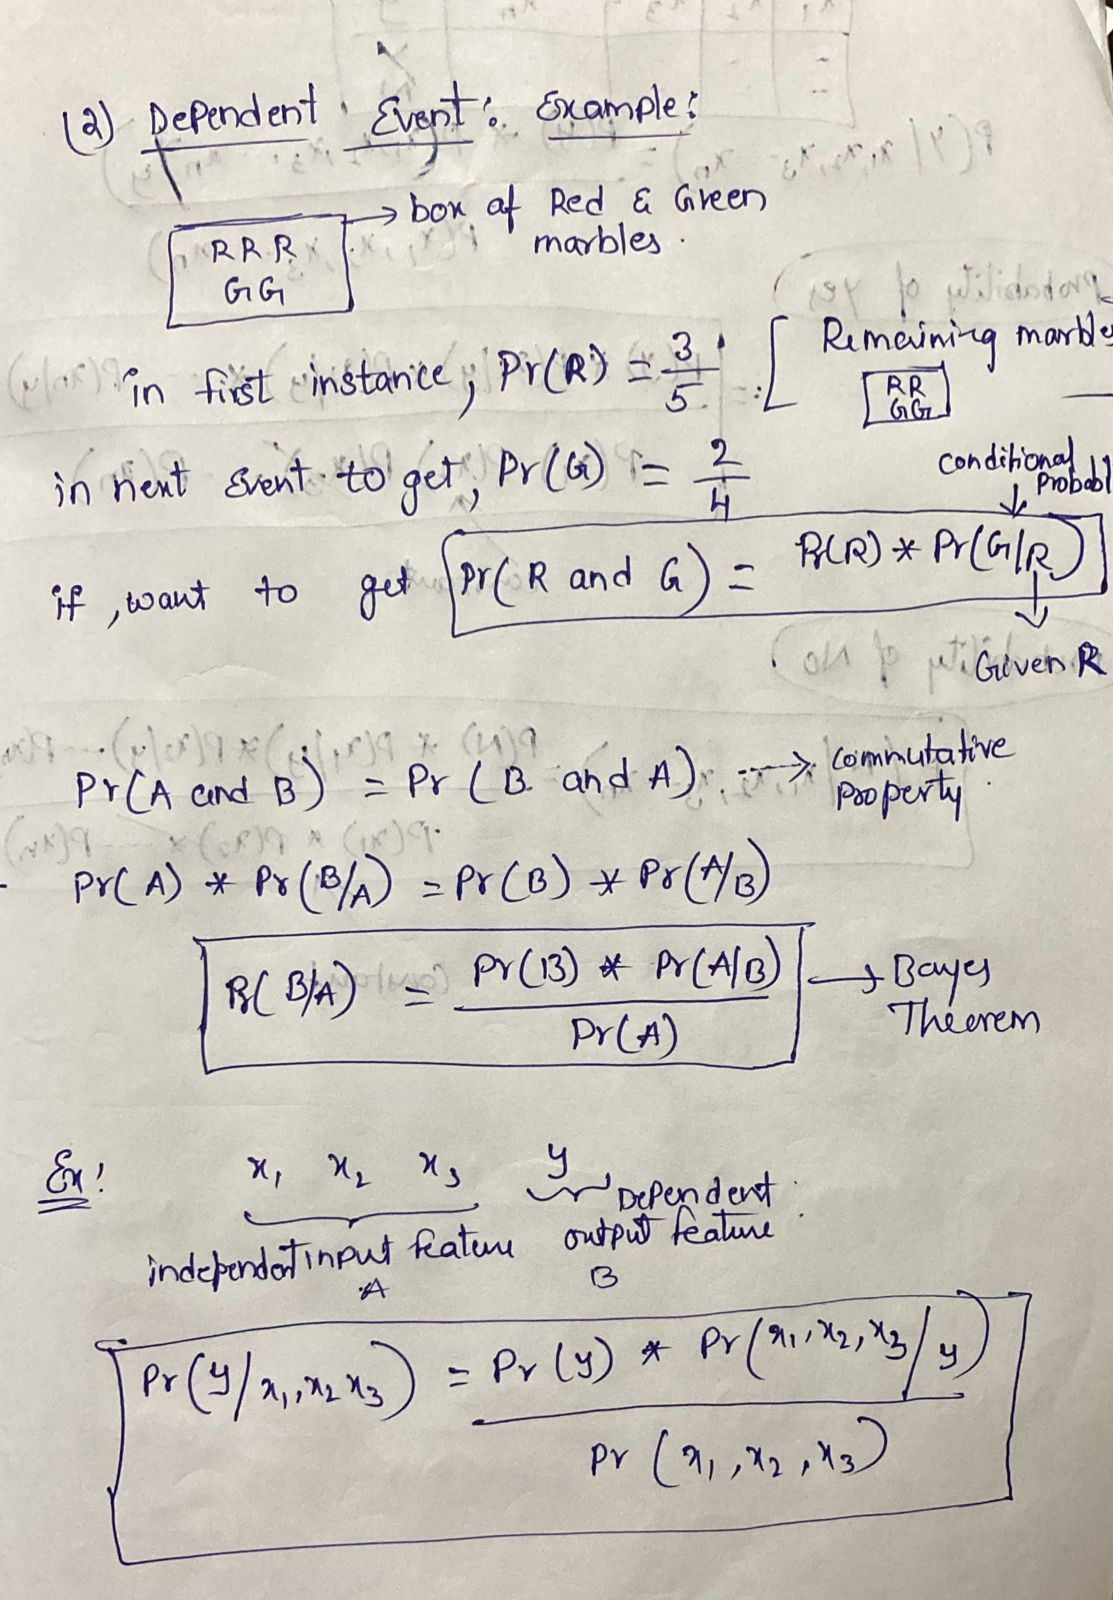 (2) Dependent Event: Example:
RRR
GG
→ box of Red & Green
marbles.
in first instance, Pr(R) = 3/5 : [ Remaining marbles
RR
GG
in next Event to get, Pr(G) = 2/4
conditional
Probabl
if, want to get Pr(R and G) = Pr(R) * Pr(G/R)
Given R
Pr(A and B) = Pr(B and A). → commutative
Property.
Pr(A) * Pr(B/A) = Pr(B) * Pr(A/B)
Pr(B/A) = Pr(B) * Pr(A/B) / Pr(A) → Bayes
Theorem
Ex:
x₁ x₂ x₃ y
independent input feature
A
Dependent
output feature
B
Pr(y/x₁,x₂ x₃) = Pr(y) * Pr(x₁,x₂,x₃/y) / Pr(x₁,x₂,x₃)